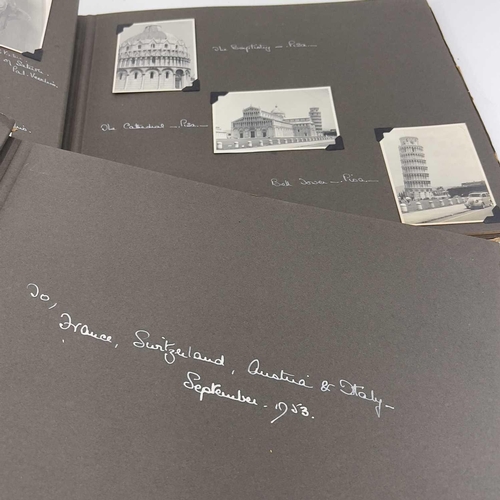 The Baptistry - Pisa -
The Cathedral - Pisa -
Bell Tower - Pisa -
To,
France, Switzerland, Austria & Italy -
September. 1953.